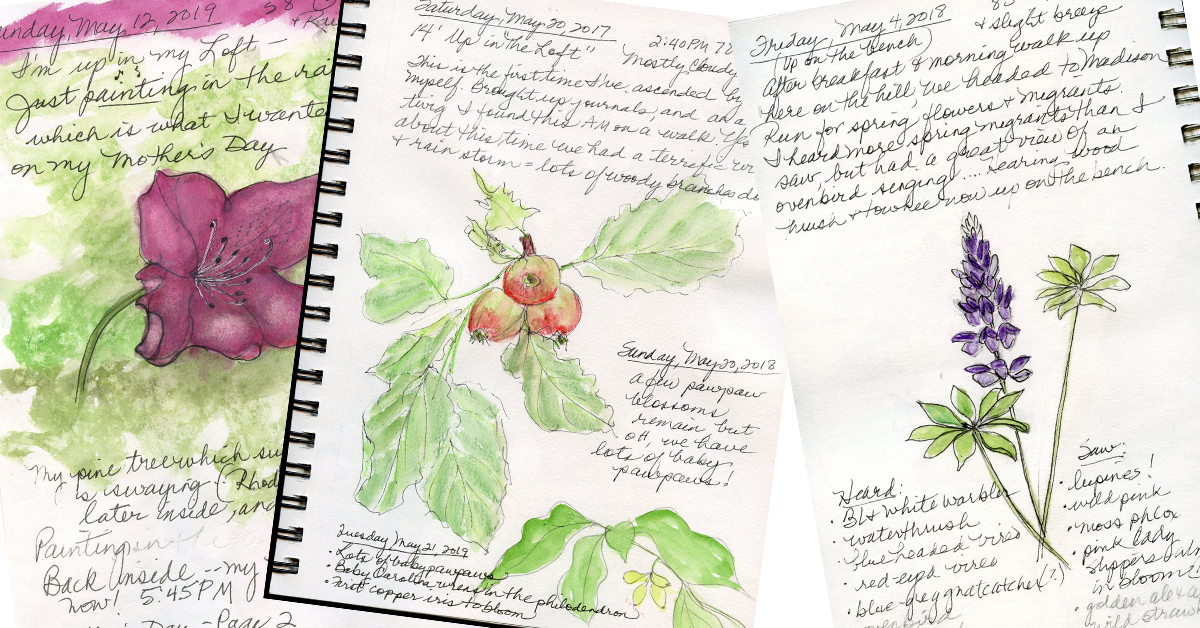 Sunday, May 12, 2019 58
I'm up in my Loft -
Just painting in the
which is what I
on my Mother's Day
My pine tree which
is swaying - (Rhod
later inside, and
Painting
Back Inside -- my
now! 5:45 PM
Day - Page 2
Saturday, May 20, 2017
14' Up in the Loft" 2:40 PM 72
Mostly Cloudy
This is the first time I've ascended by
myself. Brought up journals, and an a
twig I found this AM on a walk.
about this time we had a terrific
& rain storm = lots of woody branches do
Sunday, May 20, 2018
a few pawpaw
blossoms
remain but
oh, we have
lots of baby
pawpaws!
Tuesday May 21, 2019
• Lots of baby pawpaws
• Baby Carolina wrens in the philodendron
• First copper iris to bloom
Friday, May 4, 2018
(Up on the bench) & slight breeze
After breakfast & morning walk up
here on the hill, we headed to Madison
Run for spring flowers & migrants.
I heard more spring migrants than I
saw, but had a great view of an
ovenbird singing! .... Hearing wood
thrush & towhee now up on the bench.
Heard:
• Bl & White warbler
• waterthrush
• blue headed vireo
• red-eyed vireo
• blue-grey gnatcatcher (?)
ovenbird
Saw:
• lupines!
• wild pink
• moss phlox
• pink lady
slippers
in bloom
• golden alexa
wild straw